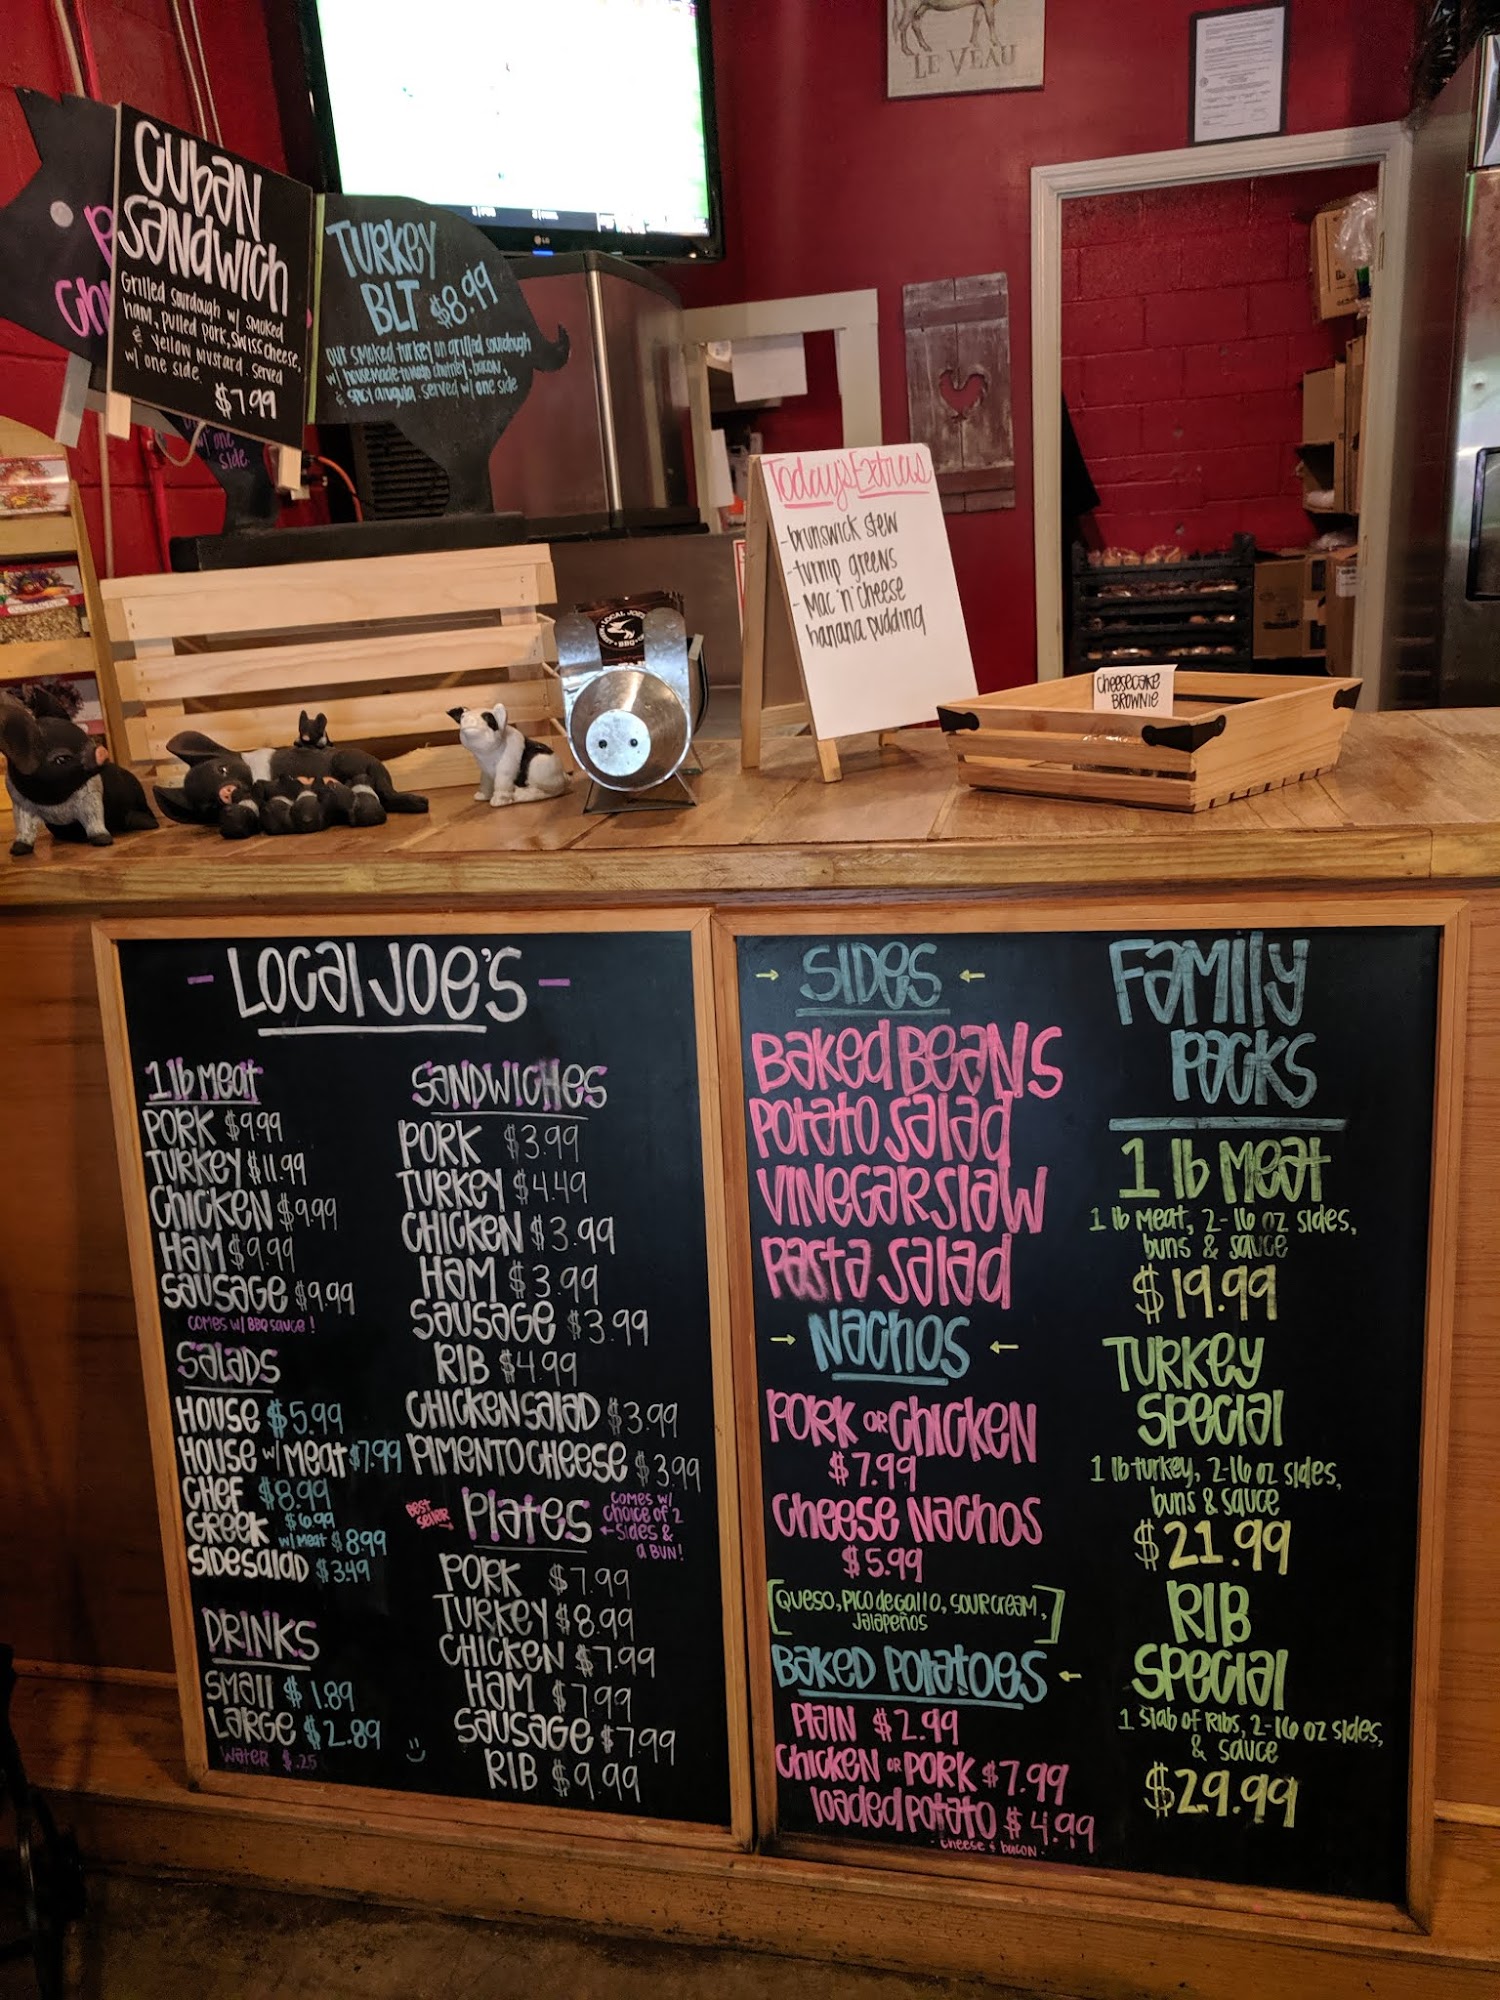 LE VEAU
CUBAN
SANDWICH
Grilled sourdough w/ smoked
ham, pulled pork, swiss cheese,
& yellow mustard. served
w/ one side.
$7.99
TURKEY
BLT $8.99
our smoked turkey on grilled sourdough
w/ housemade tomato chutney, bacon,
& spicy arugula. served w/ one side
w/ one
side.
LG
Today's Extras
- brunswick stew
- turnip greens
- Mac 'n' cheese
banana pudding
LOCAL JOE'S
BBQ
cheesecake
BROWNIE
- Local Joe's -
1 lb Meat
PORK $9.99
TURKEY $11.99
CHICKEN $9.99
HAM $9.99
SAUSAGE $9.99
COMES W/ BBQ SAUCE!
Salads
HOUSE $5.99
HOUSE w/ MEAT $7.99
CHEF $8.99
GREEK $6.99
w/ MEAT $8.99
SIDE SALAD $3.49
DRINKS
SMALL $1.89
LARGE $2.89
WATER $.25
SANDWICHES
PORK $3.99
TURKEY $4.49
CHICKEN $3.99
HAM $3.99
SAUSAGE $3.99
RIB $4.99
CHICKEN SALAD $3.99
PIMENTO CHEESE $3.99
BEST
SELLER
Plates
COMES W/
CHOICE OF 2
SIDES &
A BUN!
PORK $7.99
TURKEY $8.99
CHICKEN $7.99
HAM $7.99
SAUSAGE $7.99
RIB $9.99
SIDES
BAKED BEANS
POTATO SALAD
VINEGAR SLAW
PASTA SALAD
NACHOS
PORK OR CHICKEN
$7.99
CHEESE NACHOS
$5.99
[QUESO, PICO de GALLO, SOUR CREAM,
JALAPEÑOS]
BAKED POTATOES
PLAIN $2.99
CHICKEN OR PORK $7.99
loaded POTATO $4.99
- cheese & bacon -
FAMILY
PACKS
1 lb Meat
1 lb Meat, 2-16 oz sides,
buns & sauce
$19.99
TURKEY
SPECIAL
1 lb turkey, 2-16 oz sides,
buns & sauce
$21.99
RIB
SPECIAL
1 slab of RIBS, 2-16 oz sides,
& sauce
$29.99